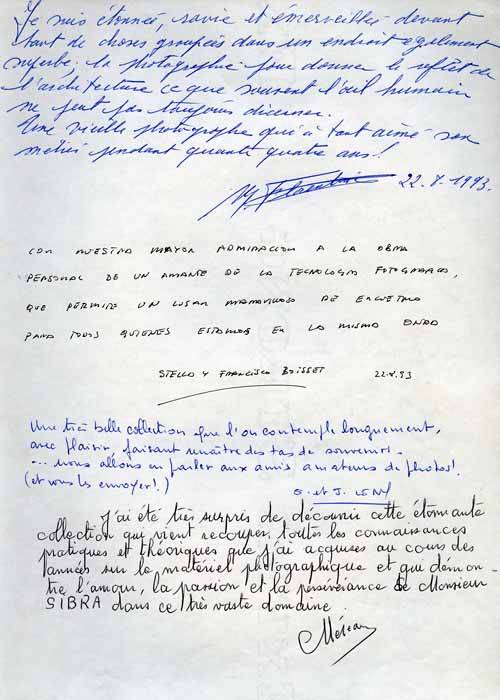 Je suis étonnée, ravie et émerveillée devant
tant de choses groupées dans un endroit également
superbe; la photographie pour donner le reflet de
l'architecture ce que souvent l'œil humain
ne peut pas toujours discerner.
Une vieille photographe qui a tant aimé son
métier pendant quarante quatre ans!
22.8.1993.
CON NUESTRA MAYOR ADMIRACION A LA OBRA
PERSONAL DE UN AMANTE DE LA TECNOLOGIA FOTOGRAFICA,
QUE PERMITE UN LUGAR MARAVILLOSO DE ENCUENTRO
PARA TODOS QUIENES ESTAMOS EN LA MISMA ONDA
STELLA Y FRANCISCO BOISSET 22.8.93
Une très belle collection que l'on contemple longuement,
avec plaisir, faisant renaître des tas de souvenirs.
... nous allons en parler aux amis amateurs de photos!
(et vous les envoyer!)
G. et J. LENY
J'ai été très surpris de découvrir cette étonnante
collection qui vient recouper toutes les connaissances
pratiques et théoriques que j'ai acquises au cours des
années sur le matériel photographique et qui démon-
tre l'amour, la passion et la persévérance de Monsieur
SIBRA dans ce très vaste domaine.